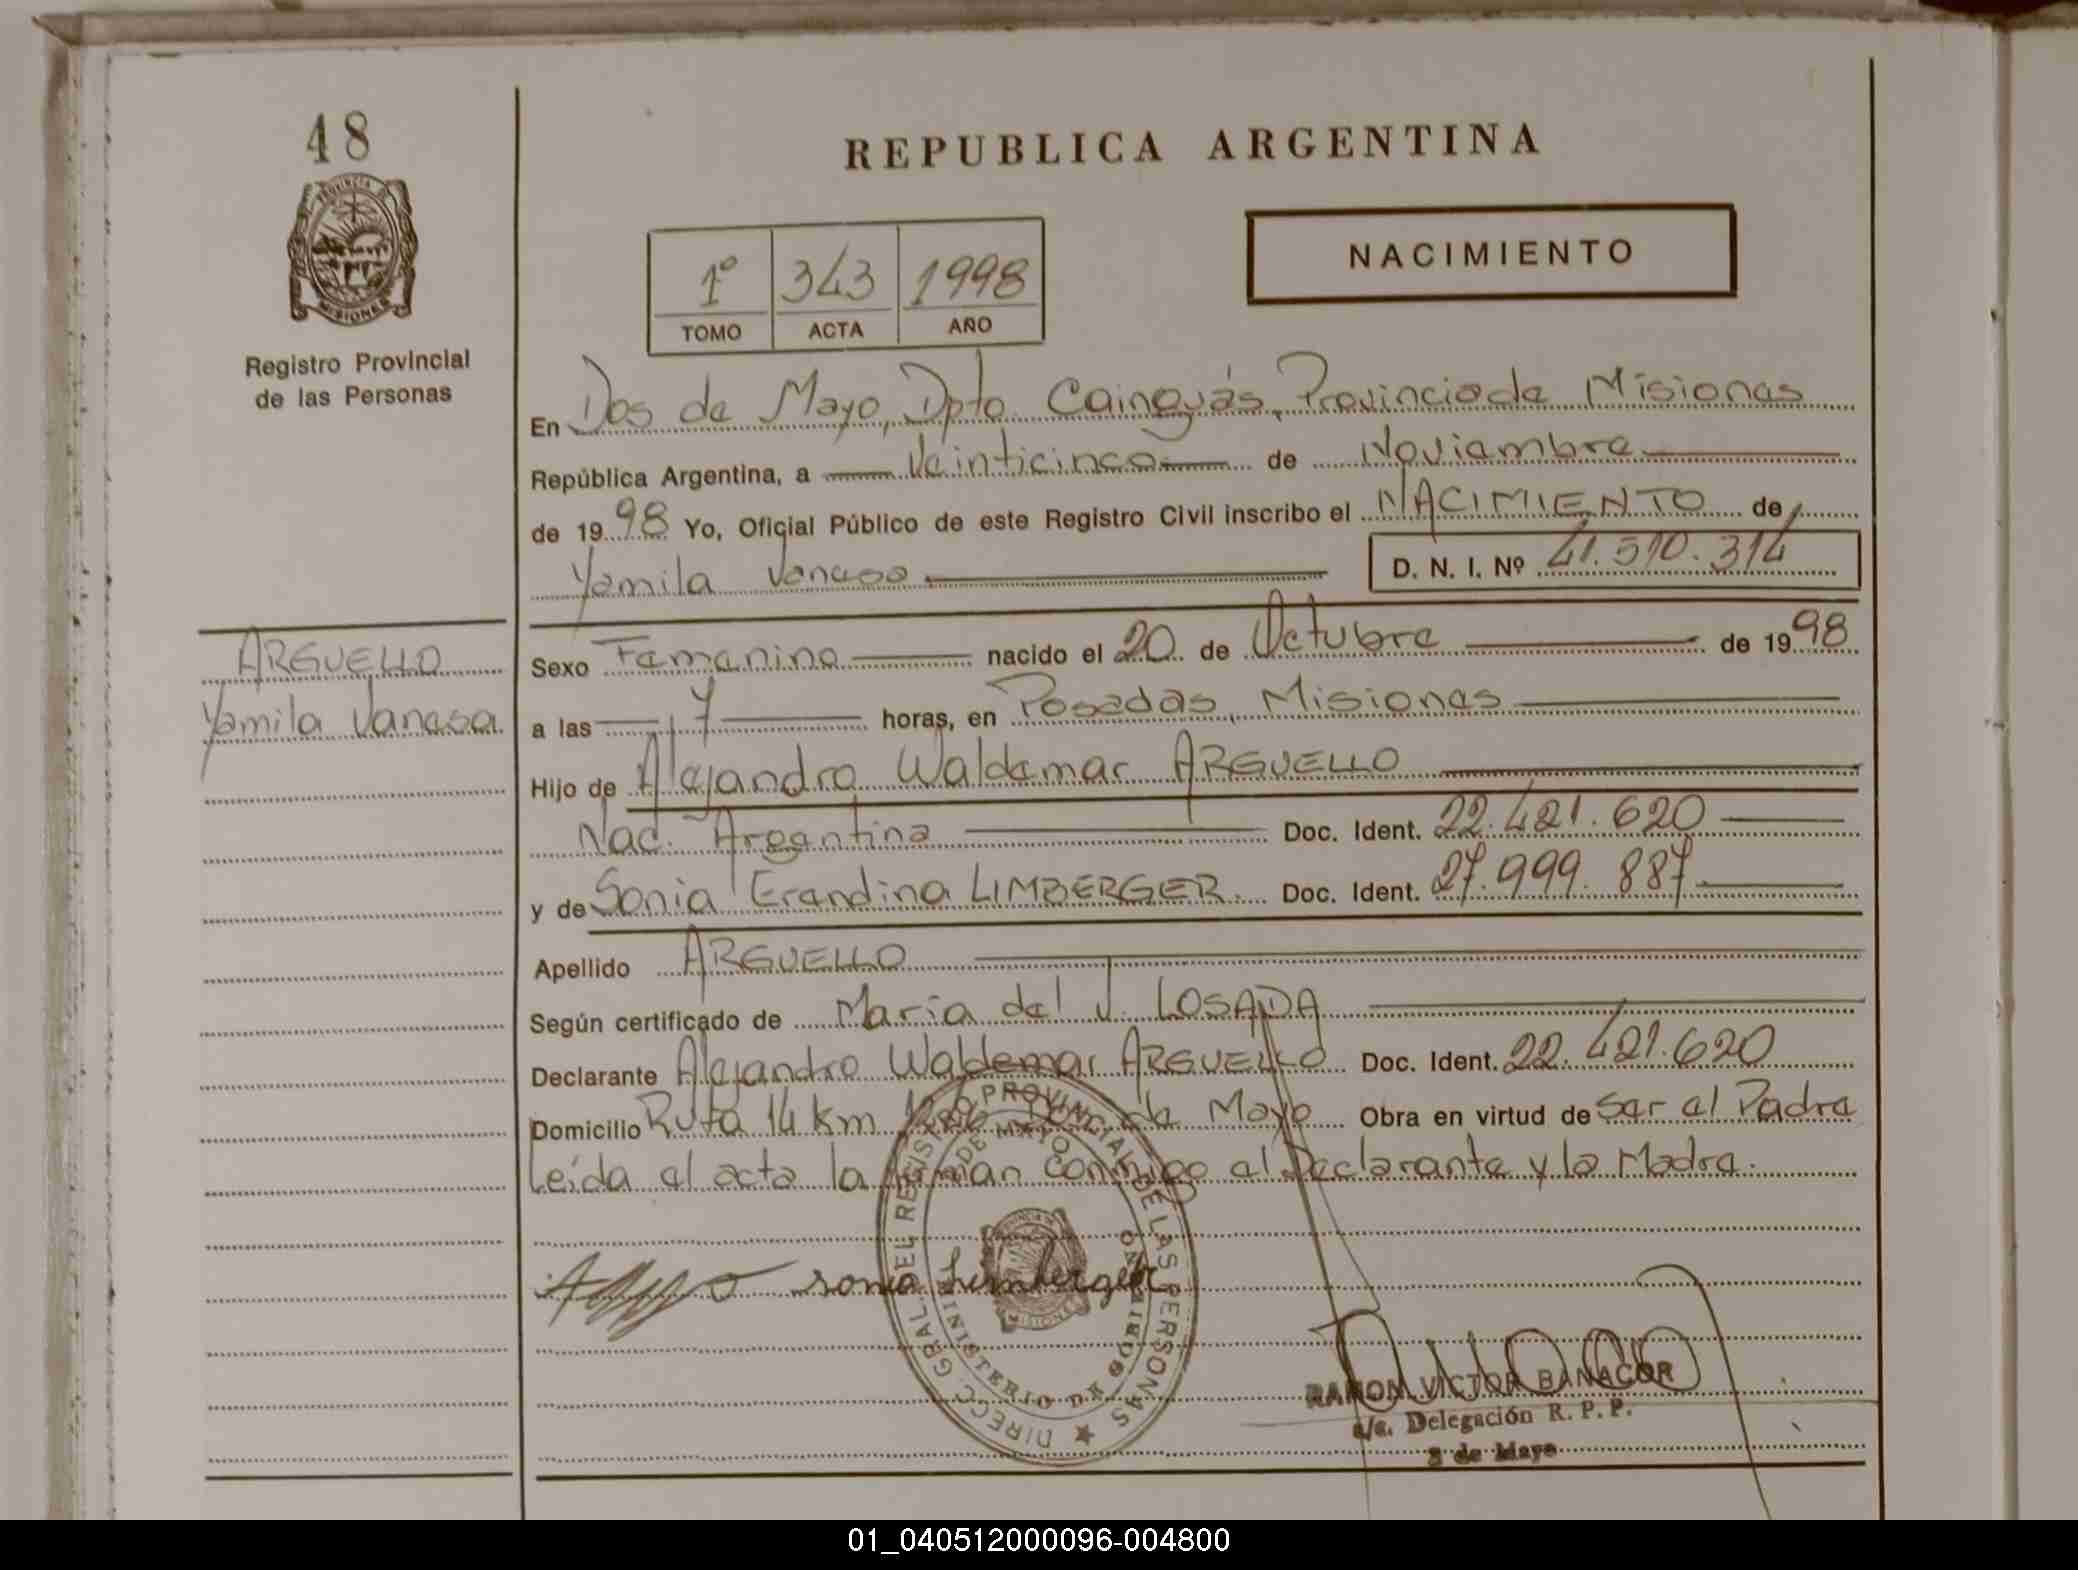 48
REPUBLICA ARGENTINA
PROVINCIA DE
MISIONES
Registro Provincial
de las Personas
NACIMIENTO
1º 343 1998
TOMO ACTA AÑO
En Dos de Mayo, Dpto. Cainguás, Provincia de Misiones
República Argentina, a Veinticinco de Noviembre
de 1998 Yo, Oficial Público de este Registro Civil inscribo el NACIMIENTO de
Yamila Vanesa D. N. I. Nº 41.510.314
ARGUELLO
Yamila Vanesa
Sexo Femenino nacido el 20 de Octubre de 1998
a las 7 horas, en Posadas, Misiones
Hijo de Alejandro Waldemar ARGUELLO
Nac. Argentina Doc. Ident. 22.421.620
y de Sonia Erendina LIMBERGER. Doc. Ident. 27.999.887
Apellido ARGUELLO
Según certificado de María del J. LOSADA
Declarante Alejandro Waldemar ARGUELLO Doc. Ident. 22.421.620
Domicilio Ruta 14 km de Mayo Obra en virtud de ser el Padre
Leída el acta la firman conmigo el Declarante y la Madre.
DIRECC. GRAL. DEL REGISTRO PROVINCIAL DE LAS PERSONAS
DE MAYO
MINISTERIO DE GOBIERNO
sonia Limberger
RAMON VICTOR BANACOR
a/c. Delegación R. P. P.
2 de Mayo
01_040512000096-004800